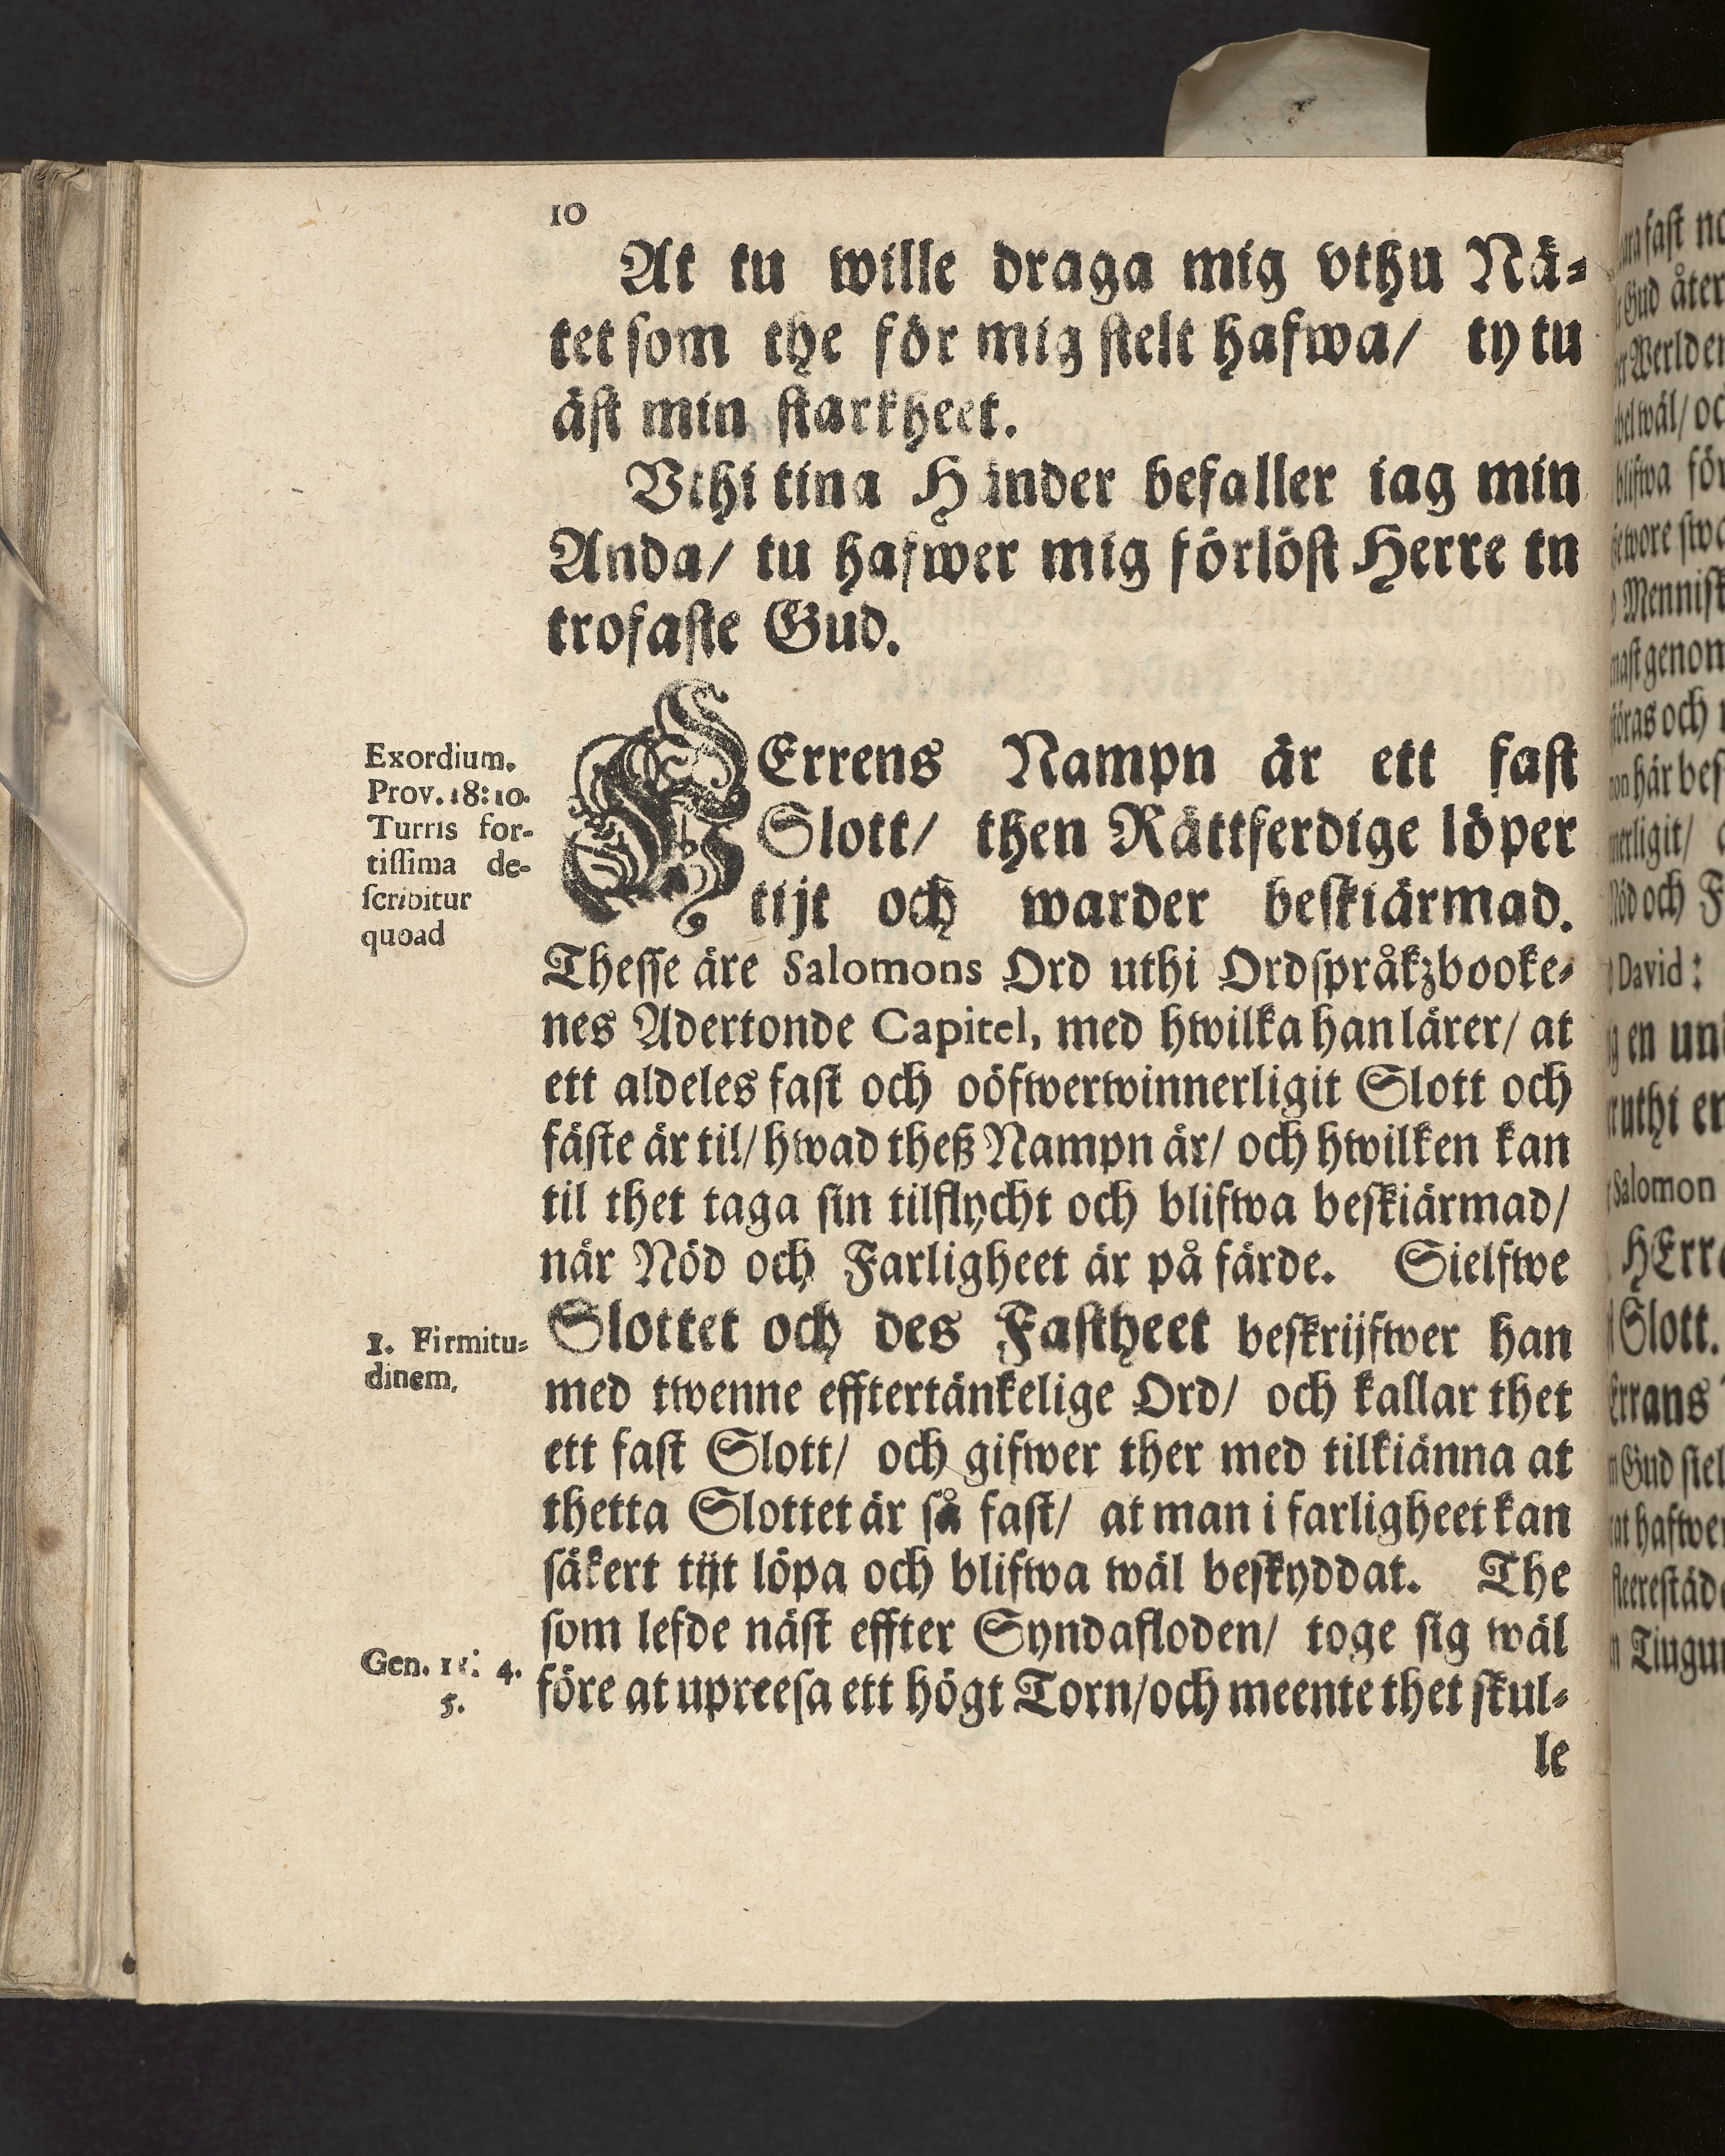 10
At tu wille draga mig vthu Nä-
tet som the för mig stelt hafwa/ ty tu
äst min starkheet.
Vthi tina Händer befaller iag min
Anda/ tu hafwer mig förlöst Herre tn
trofaste Gud.
Exordium.
Prov. 18:10.
Turris for-
tissima de-
scribitur
quoad
HErrens Nampn är ett fast
Slott/ then Rättferdige löper
tijt och warder beskiärmad.
Thesse äre Salomons Ord uthi Ordspråkzbooke-
nes Adertonde Capitel, med hwilka han lärer/ at
ett aldeles fast och oöfwerwinnerligit Slott och
fäste är til/ hwad theß Nampn är/ och hwilken kan
til thet taga sin tilflycht och blifwa beskiärmad/
när Nöd och Farligheet är på färde. Sielfwe
1. Firmitu-
dinem.
Slottet och des Fastheet beskrijfwer han
med twenne efftertänkelige Ord/ och kallar thet
ett fast Slott/ och gifwer ther med tilkiänna at
thetta Slottet är så fast/ at man i farligheet kan
säkert tijt löpa och blifwa wäl beskyddat. The
som lefde näst effter Syndafloden/ toge sig wäl
Gen. 11: 4.
5.
före at upreesa ett högt Torn/ och meente thet skul-
le
fast
Gud åter
Werlden
wäl/
blifwa för
Mennisk
genom
och
här
Nöd och
David:
en
uthi
Salomon
HErr
Slott.
Gud
hafwer